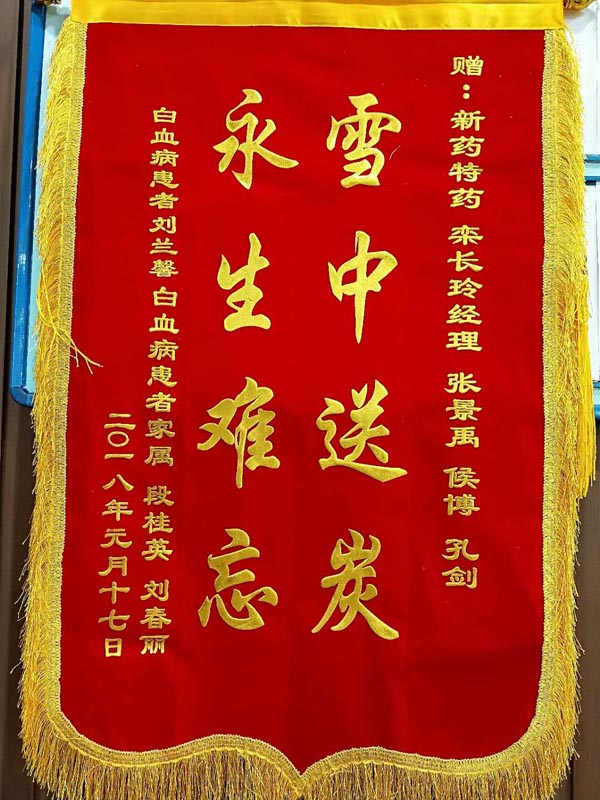 赠：新药特药 栾长玲经理 张景禹 候博 孔剑
雪中送炭
永生难忘
白血病患者刘兰馨 白血病患者家属 段桂英 刘春丽
二〇一八年元月十七日